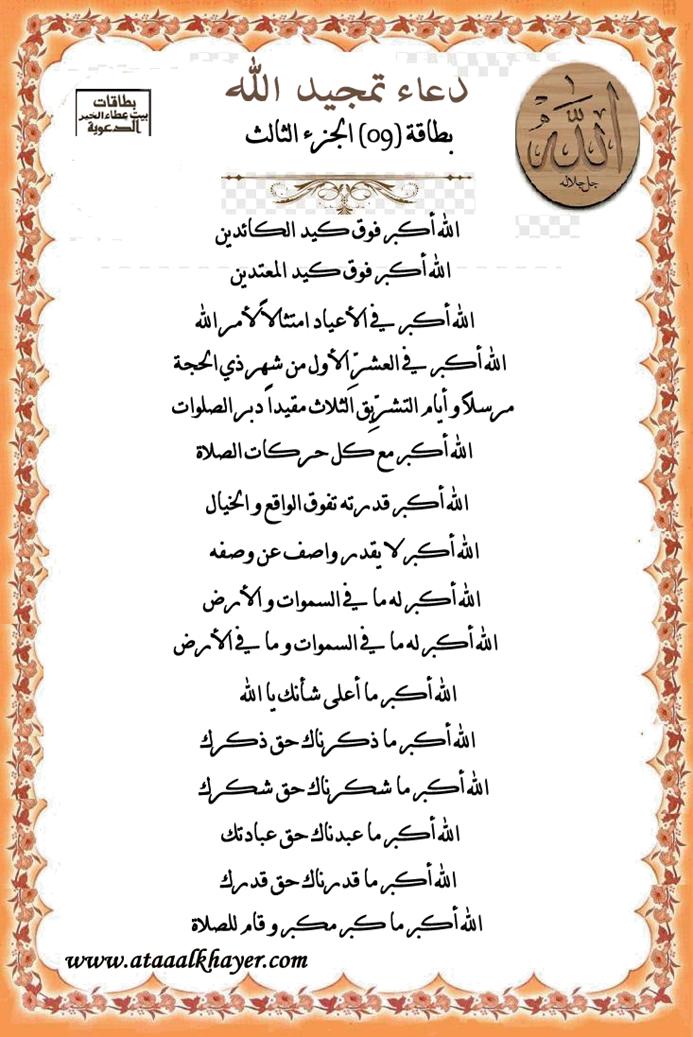 دعاء تمجيد الله
بطاقة (09) الجزء الثالث
بطاقات
بيت عطاء الخير
الدعوية
الله
جل جلاله
الله أكبر فوق كيد الكائدين
الله أكبر فوق كيد المعتدين
الله أكبر في الأعياد امتثالاً لأمر الله
الله أكبر في العشر الأول من شهر ذي الحجة
مرسلاً و أيام التشريق الثلاث مقيداً دبر الصلوات
الله أكبر مع كل حركات الصلاة
الله أكبر قدرته تفوق الواقع و الخيال
الله أكبر لا يقدر واصف عن وصفه
الله أكبر له ما في السموات و الأرض
الله أكبر له ما في السموات و ما في الأرض
الله أكبر ما أعلى شأنك يا الله
الله أكبر ما ذكرناك حق ذكرك
الله أكبر ما شكرناك حق شكرك
الله أكبر ما عبدناك حق عبادتك
الله أكبر ما قدرناك حق قدرك
الله أكبر ما كبر مكبر و قام للصلاة
www.ataaalkhayer.com